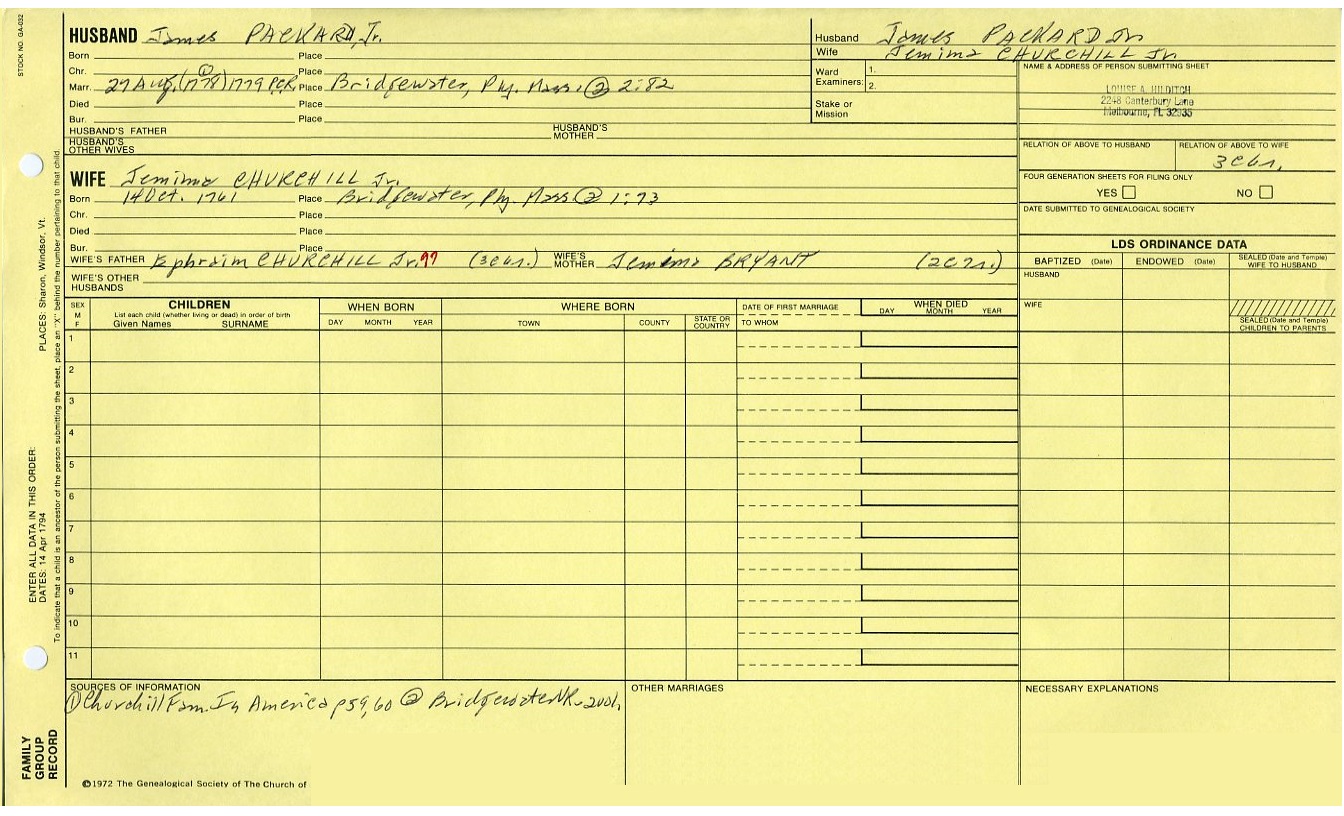 STOCK NO. GA-032
HUSBAND James PACKARD, Jr.
Born Place
Chr. Place
Marr. 27 Aug. (1778) ① 1779 PCR, Place Bridgewater, Ply. Mass. ② 2:82
Died Place
Bur. Place
HUSBAND'S FATHER HUSBAND'S MOTHER
HUSBAND'S OTHER WIVES
Husband James PACKARD Jr
Wife Jemima CHURCHILL Jr.
Ward Examiners: 1. 2.
Stake or Mission
NAME & ADDRESS OF PERSON SUBMITTING SHEET
LOUISE A. HILDITCH
2248 Canterbury Lane
Melbourne, FL 32935
RELATION OF ABOVE TO HUSBAND RELATION OF ABOVE TO WIFE
FOUR GENERATION SHEETS FOR FILING ONLY
YES NO
DATE SUBMITTED TO GENEALOGICAL SOCIETY
WIFE Jemima CHURCHILL Jr.
Born 14 Oct. 1761 Place Bridgewater, Ply. Mass ② 1:73
Chr. Place
Died Place
Bur. Place
WIFE'S FATHER Ephraim CHURCHILL Jr. WIFE'S MOTHER Jemima BRYANT
WIFE'S OTHER HUSBANDS
LDS ORDINANCE DATA
BAPTIZED (Date) ENDOWED (Date) SEALED (Date and Temple) WIFE TO HUSBAND
HUSBAND
WIFE
SEALED (Date and Temple) CHILDREN TO PARENTS
SEX M F
CHILDREN
List each child (whether living or dead) in order of birth
Given Names SURNAME
WHEN BORN
DAY MONTH YEAR
WHERE BORN
TOWN COUNTY STATE OR COUNTRY
DATE OF FIRST MARRIAGE
TO WHOM
WHEN DIED
DAY MONTH YEAR
1
2
3
4
5
6
7
8
9
10
11
SOURCES OF INFORMATION
① Churchill Fam. In America p59,60 ② Bridgewater VR
OTHER MARRIAGES
NECESSARY EXPLANATIONS
©1972 The Genealogical Society of The Church of
FAMILY GROUP RECORD
ENTER ALL DATA IN THIS ORDER:
DATES: 14 Apr 1794 PLACES: Sharon, Windsor, Vt.
To indicate that a child is an ancestor of the person submitting the sheet, place an "X" behind the number pertaining to that child.